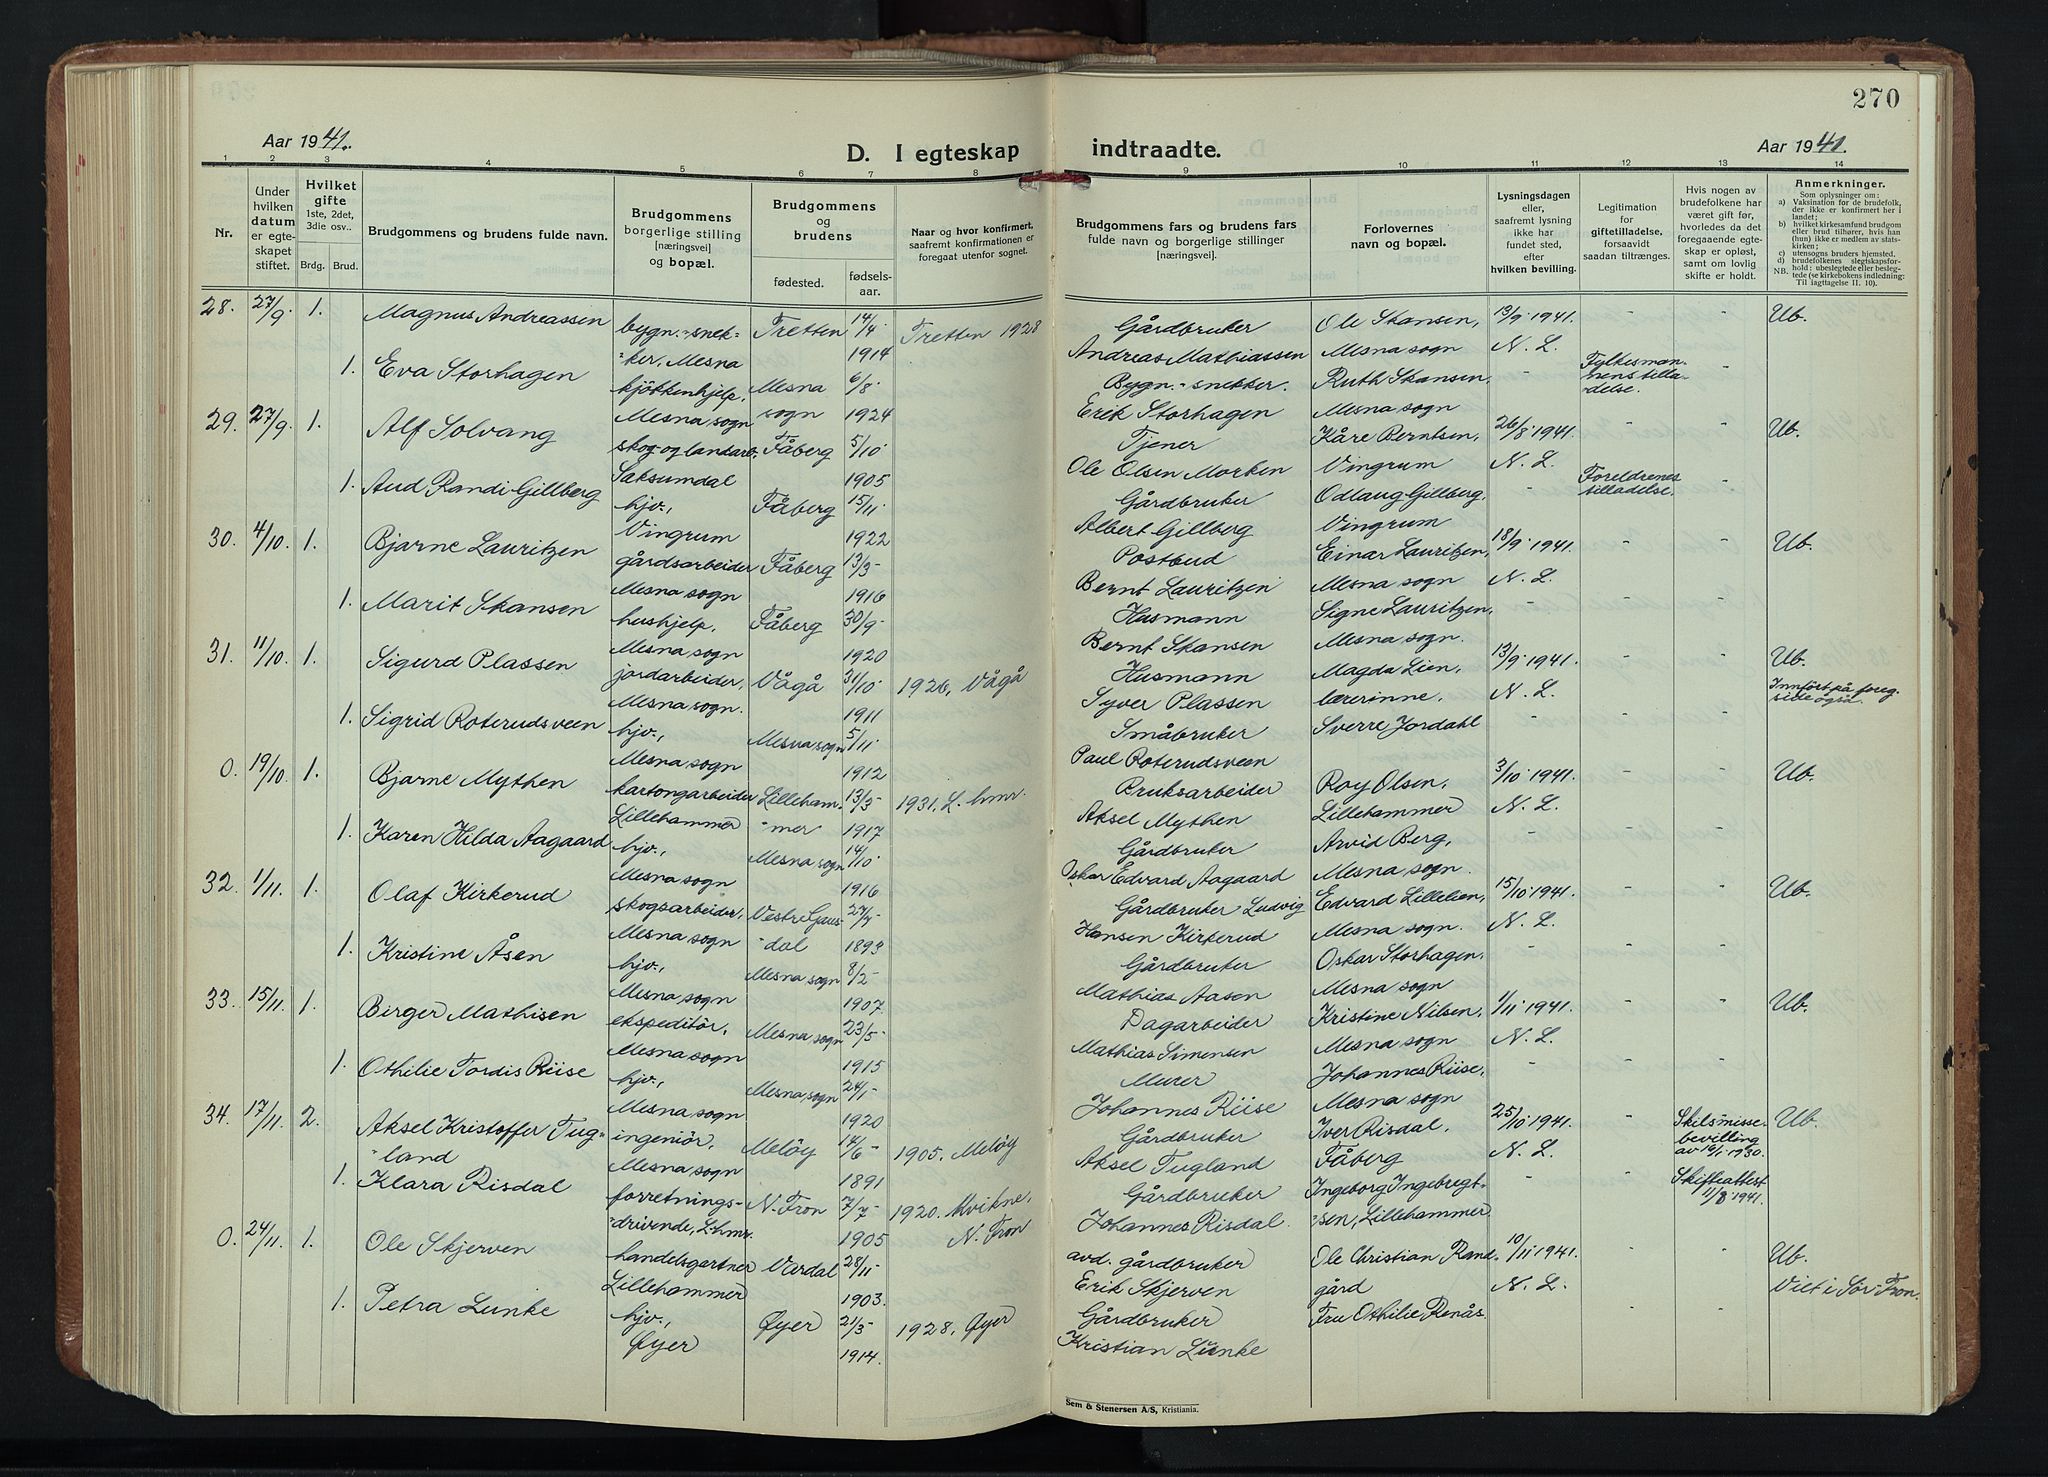 270
Aar 1941.
D. I egteskap indtraadte.
Aar 1941.
1 2 3 4 5 6 7 8 9 10 11 12 13 14
Nr.
Under hvilken datum er egteskapet stiftet.
Hvilket gifte 1ste, 2det, 3die osv..
Brdg. Brud.
Brudgommens og brudens fulde navn.
Brudgommens borgerlige stilling [næringsvei] og bopæl.
Brudgommens og brudens
fødested.
fødsels-aar.
Naar og hvor konfirmert, saafremt konfirmationen er foregaat utenfor sognet.
Brudgommens fars og brudens fars fulde navn og borgerlige stillinger [næringsvei].
Forlovernes navn og bopæl.
Lysningsdagen eller, saafremt lysning ikke har fundet sted, efter hvilken bevilling.
Legitimation for giftetilladelse, forsaavidt saadan tiltrænges.
Hvis nogen av brudefolkene har været gift før, hvorledes da det foregaaende egteskap er opløst, samt om lovlig skifte er holdt.
Anmerkninger.
Som oplysninger om:
a) Vaksination for de brudefolk, der ikke er konfirmert her i landet;
b) hvilket kirkesamfund brudgom eller brud tilhører, hvis han (hun) ikke er medlem av statskirken;
c) utensogns bruders hjemsted.
d) brudefolkenes slegtskapsforhold: ubeslegtede eller beslegtede (se kirkebokens indledning: Til iagttagelse II. 10).
NB.
28. 27/9 1. Magnus Andreassen bygn.-snekker, Mesna Tretten 14/4 1914 Tretten 1928 Gårdbruker Andreas Mathiassen Ole Skansen, Mesna sogn 13/9 1941. N. L. - - Ub.
1. Eva Storhagen kjökkenhjelp, Mesna sogn Mesna sogn 6/8 1924 Bygn.-snekker. Erik Storhagen Ruth Skansen, Mesna sogn - Fylkesmannens tilladelse. -
29. 27/9. 1. Alf Solvang skog- og landarb. Saksumdal Fåberg 5/10 1905 Tjener Ole Olsen Morken Kåre Berntsen, Vingrum 26/8 1941. N. L. - - Ub.
1. Aud Randi Gillberg hjv., Vingrum Fåberg 15/11 1922 Gårdbruker Albert Gillberg Odlaug Gillberg, Vingrum - Foreldrenes tilladelse. -
30. 4/10. 1. Bjarne Lauritzen gårdsarbeider Mesna sogn Fåberg 13/3- 1916 Postbud Bernt Lauritzen Einar Lauritzen, Mesna sogn 18/9 1941. N. L. - - Ub.
1. Marit Skansen hushjelp, Mesna sogn Fåberg 30/9- 1920 Husmann Bernt Skansen Signe Lauritzen, Mesna sogn. - - -
31. 11/10. 1. Sigurd Plassen jordarbeider, Mesna sogn. Vågå 31/10 1911 1926, Vågå Husmann Syver Plassen Magda Lien, lærerinne, 13/9 1941. N. L. - - Ub. Innfört på foreg. side også.
1. Sigrid Roterudsveen hjv., Mesna sogn Mesna sogn 5/11 1912 Småbruker Paul Roterudsveen Sverre Jordahl - - -
0. 19/10. 1. Bjarne Mythen kartongarbeider Lillehammer Lillehammer 13/3- 1917 1931. L. hmr. Bruksarbeider Aksel Mythen Roy Olsen, Lillehammer 3/10 1941. N. L. - - Ub.
1. Karen Hilda Aagaard hjv., Mesna sogn Mesna sogn 14/10 1916 Gårdbruker Oskar Edvard Aagaard Arvid Berg, Mesna sogn. - - -
32. 1/11. 1. Olaf Kirkerud skogsarbeider, Mesna sogn Vestre Gausdal 27/7- 1893 Gårdbruker Ludvig Hansen Kirkerud Edvard Lillelien, Mesna sogn. 15/10 1941. N. L. - - Ub.
1. Kristine Åsen hjv., Mesna sogn Mesna sogn 8/2- 1907 Gårdbruker Mathias Aasen Oskar Storhagen, Mesna sogn - - -
33. 15/11. 1. Birger Mathisen ekspeditör, Mesna sogn Mesna sogn 23/5- 1915 Dagarbeider Mathias Simensen Kristine Nilsen, Mesna sogn 1/11 1941. N. L. - - Ub.
1. Othilie Tordis Riise hjv., Mesna sogn Mesna sogn 24/1- 1920 Murer Johannes Riise Johannes Riise, Mesna sogn - - -
34. 17/11. 2. Aksel Kristoffer Fugland ingeniör, Mesna sogn Melöy 14/6- 1891 1905. Melöy Gårdbruker Aksel Fugland Iver Risdal, Fåberg 25/10 1941. N. L. - Skilsmisse-bevilling av 16/1 1930. Ub.
1. Klara Risdal forretnings-drivende, L.hmr. N. Fron 7/7- 1905 1920. Kvikne, N. Fron Gårdbruker Johannes Risdal. Ingeborg Ingebrigtsen, Lillehammer - - Skifteattest 11/8 1941.
0. 24/11. 1. Ole Skjerven handelsgartner Lillehammer Vardal 28/11- 1903. avd. gårdbruker Erik Skjerven Ole Christian Randgård 10/11 1941. N. L. - - Ub. Viet i Sör-Fron.
1. Petra Lunke hjv., Øyer Øyer 21/3- 1914. 1928. Øyer Gårdbruker Kristian Lunke Fru Othilie Renås. - - -
Sem & Stenersen A/S, Kristiania.